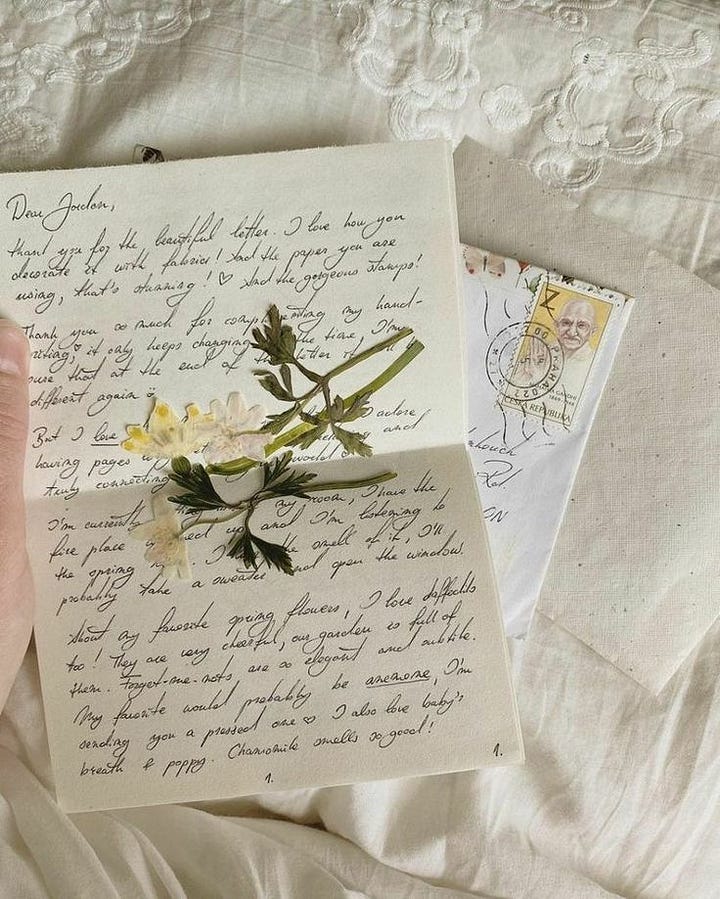 Dear Jordan,
thank you for the beautiful letter. I love how you
decorate it with fabrics! And the paper you are
using, that's stunning! ♡ And the gorgeous stamps!
Thank you so much for complimenting my hand-
writing, it only keeps changing all the time, I'm
sure that at the end of the letter it'll be
different again
But I love adore
having pages and
truly connecting world
I'm currently my room, I have the
fire place and I'm listening to
the spring the smell of it, I'll
probably take a sweater and open the window.
About my favorite spring flowers, I love daffodils
too! They are very cheerful, our garden is full of
them. Forget-me-nots are so elegant and subtile.
My favorite would probably be anemone, I'm
sending you a pressed one ♡ I also love baby's
breath & poppy. Chamomile smells so good!
1.
1.
Z
GANDHI
1869-1948
ČESKÁ REPUBLIKA
ON